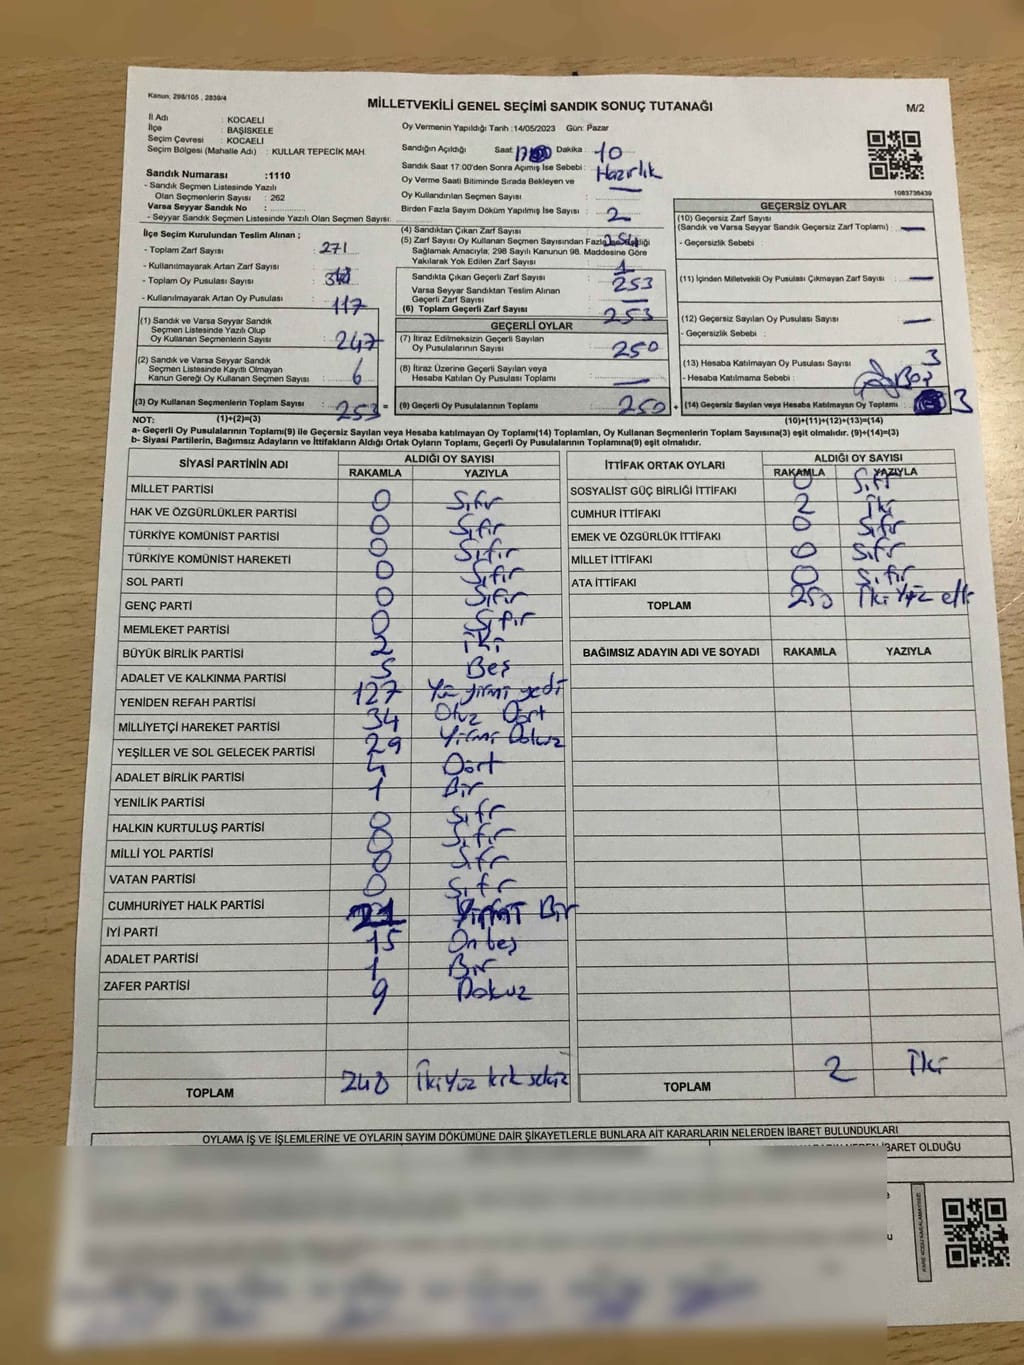 Kanun, 298/105 , 2839/4
MİLLETVEKİLİ GENEL SEÇİMİ SANDIK SONUÇ TUTANAĞI
M/2
İl Adı : KOCAELİ
İlçe : BAŞİSKELE
Seçim Çevresi : KOCAELİ
Seçim Bölgesi (Mahalle Adı) : KULLAR TEPECİK MAH.
Sandık Numarası :1110
- Sandık Seçmen Listesinde Yazılı
Olan Seçmenlerin Sayısı : 262
Varsa Seyyar Sandık No :
- Seyyar Sandık Seçmen Listesinde Yazılı Olan Seçmen Sayısı:
Oy Vermenin Yapıldığı Tarih :14/05/2023 Gün: Pazar
Sandığın Açıldığı Saat: Dakika : 10
Sandık Saat 17:00'den Sonra Açılmış İse Sebebi : Hazırlık
Oy Verme Saati Bitiminde Sırada Bekleyen ve
Oy Kullandırılan Seçmen Sayısı : —
Birden Fazla Sayım Döküm Yapılmış İse Sayısı : 2
1083736439
İlçe Seçim Kurulundan Teslim Alınan ;
- Toplam Zarf Sayısı : 271
- Kullanılmayarak Artan Zarf Sayısı :
- Toplam Oy Pusulası Sayısı :
- Kullanılmayarak Artan Oy Pusulası : 117
(1) Sandık ve Varsa Seyyar Sandık
Seçmen Listesinde Yazılı Olup
Oy Kullanan Seçmenlerin Sayısı : 247
(2) Sandık ve Varsa Seyyar Sandık
Seçmen Listesinde Kayıtlı Olmayan
Kanun Gereği Oy Kullanan Seçmen Sayısı : 6
(3) Oy Kullanan Seçmenlerin Toplam Sayısı : 253 =
(4) Sandıktan Çıkan Zarf Sayısı : 254
(5) Zarf Sayısı Oy Kullanan Seçmen Sayısından Fazla İse
Sağlamak Amacıyla; 298 Sayılı Kanunun 98. Maddesine Göre
Yakılarak Yok Edilen Zarf Sayısı : 1
Sandıkta Çıkan Geçerli Zarf Sayısı : 253
Varsa Seyyar Sandıktan Teslim Alınan
Geçerli Zarf Sayısı : —
(6) Toplam Geçerli Zarf Sayısı : 253
GEÇERLİ OYLAR
(7) İtiraz Edilmeksizin Geçerli Sayılan
Oy Pusulalarının Sayısı : 250
(8) İtiraz Üzerine Geçerli Sayılan veya
Hesaba Katılan Oy Pusulası Toplamı : —
(9) Geçerli Oy Pusulalarının Toplamı : 250 +
GEÇERSİZ OYLAR
(10) Geçersiz Zarf Sayısı
(Sandık ve Varsa Seyyar Sandık Geçersiz Zarf Toplamı) : —
- Geçersizlik Sebebi :
(11) İçinden Milletvekili Oy Pusulası Çıkmayan Zarf Sayısı : —
(12) Geçersiz Sayılan Oy Pusulası Sayısı : —
- Geçersizlik Sebebi :
(13) Hesaba Katılmayan Oy Pusulası Sayısı : 3
- Hesaba Katılmama Sebebi : Boş
(14) Geçersiz Sayılan veya Hesaba Katılmayan Oy Toplamı : 3
NOT: (1)+(2)=(3) (10)+(11)+(12)+(13)=(14)
a- Geçerli Oy Pusulaları Toplamı(9) ile Geçersiz Sayılan veya Hesaba katılmayan Oy Toplamı(14) Toplamları, Oy Kullanan Seçmenlerin Toplam Sayısına(3) eşit olmalıdır. (9)+(14)=(3)
b- Siyasi Partilerin, Bağımsız Adayların ve İttifakların Aldığı Ortak Oyların Toplamı, Geçerli Oy Pusulalarının Toplamına(9) eşit olmalıdır.
SİYASİ PARTİNİN ADI ALDIĞI OY SAYISI
RAKAMLA YAZIYLA
MİLLET PARTİSİ 0 Sıfır
HAK VE ÖZGÜRLÜKLER PARTİSİ 0 Sıfır
TÜRKİYE KOMÜNİST PARTİSİ 0 Sıfır
TÜRKİYE KOMÜNİST HAREKETİ 0 Sıfır
SOL PARTİ 0 Sıfır
GENÇ PARTİ 0 Sıfır
MEMLEKET PARTİSİ 2 İki
BÜYÜK BİRLİK PARTİSİ 5 Beş
ADALET VE KALKINMA PARTİSİ 127 Yüz yirmi yedi
YENİDEN REFAH PARTİSİ 34 Otuz Dört
MİLLİYETÇİ HAREKET PARTİSİ 29 Yirmi Dokuz
YEŞİLLER VE SOL GELECEK PARTİSİ 4 Dört
ADALET BİRLİK PARTİSİ 1 Bir
YENİLİK PARTİSİ 0 Sıfır
HALKIN KURTULUŞ PARTİSİ 0 Sıfır
MİLLİ YOL PARTİSİ 0 Sıfır
VATAN PARTİSİ 0 Sıfır
CUMHURİYET HALK PARTİSİ 21 Yirmi Bir
İYİ PARTİ 15 On beş
ADALET PARTİSİ 1 Bir
ZAFER PARTİSİ 9 Dokuz
TOPLAM 248 İki yüz kırk sekiz
İTTİFAK ORTAK OYLARI ALDIĞI OY SAYISI
RAKAMLA YAZIYLA
SOSYALİST GÜÇ BİRLİĞİ İTTİFAKI 0 Sıfır
CUMHUR İTTİFAKI 2 İki
EMEK VE ÖZGÜRLÜK İTTİFAKI 0 Sıfır
MİLLET İTTİFAKI 0 Sıfır
ATA İTTİFAKI 0 Sıfır
TOPLAM 250 İki yüz elli
BAĞIMSIZ ADAYIN ADI VE SOYADI RAKAMLA YAZIYLA
TOPLAM 2 İki
OYLAMA İŞ VE İŞLEMLERİNE VE OYLARIN SAYIM DÖKÜMÜNE DAİR ŞİKAYETLERLE BUNLARA AİT KARARLARIN NELERDEN İBARET BULUNDUKLARI
İBARET OLDUĞU